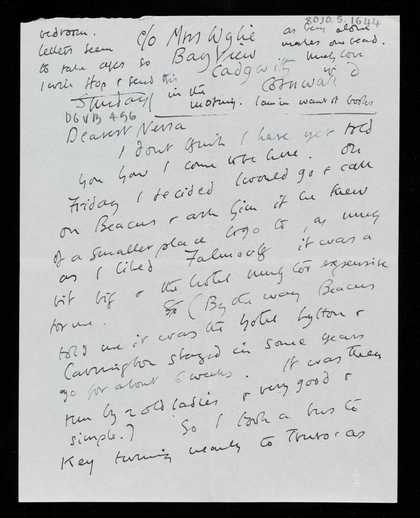 bedroom.
Letters seem
to take ages so
I will stop & send this
in the
morning.
as being alone
makes one read.
much love
D
I am in want of books
8010.5.1644
c/o Mrs Wylie
Bay View
Cadgwith
Cornwall
Sunday
DGVB 496
Dearest Nessa
I don't think I have yet told
you how I came to be here. On
Friday I decided I would go & call
on Beacus & ask him if he knew
of a smaller place to go to, as much
as I liked Falmouth it was a
bit big & the hotel much too expensive
for me. (By the way Beacus
told me it was the hotel Lytton &
Carrington stayed in some years
ago for about 6 weeks. It was then
run by 2 old ladies & very good &
simple.) So I took a bus to
Key turning nearly to Truro & as